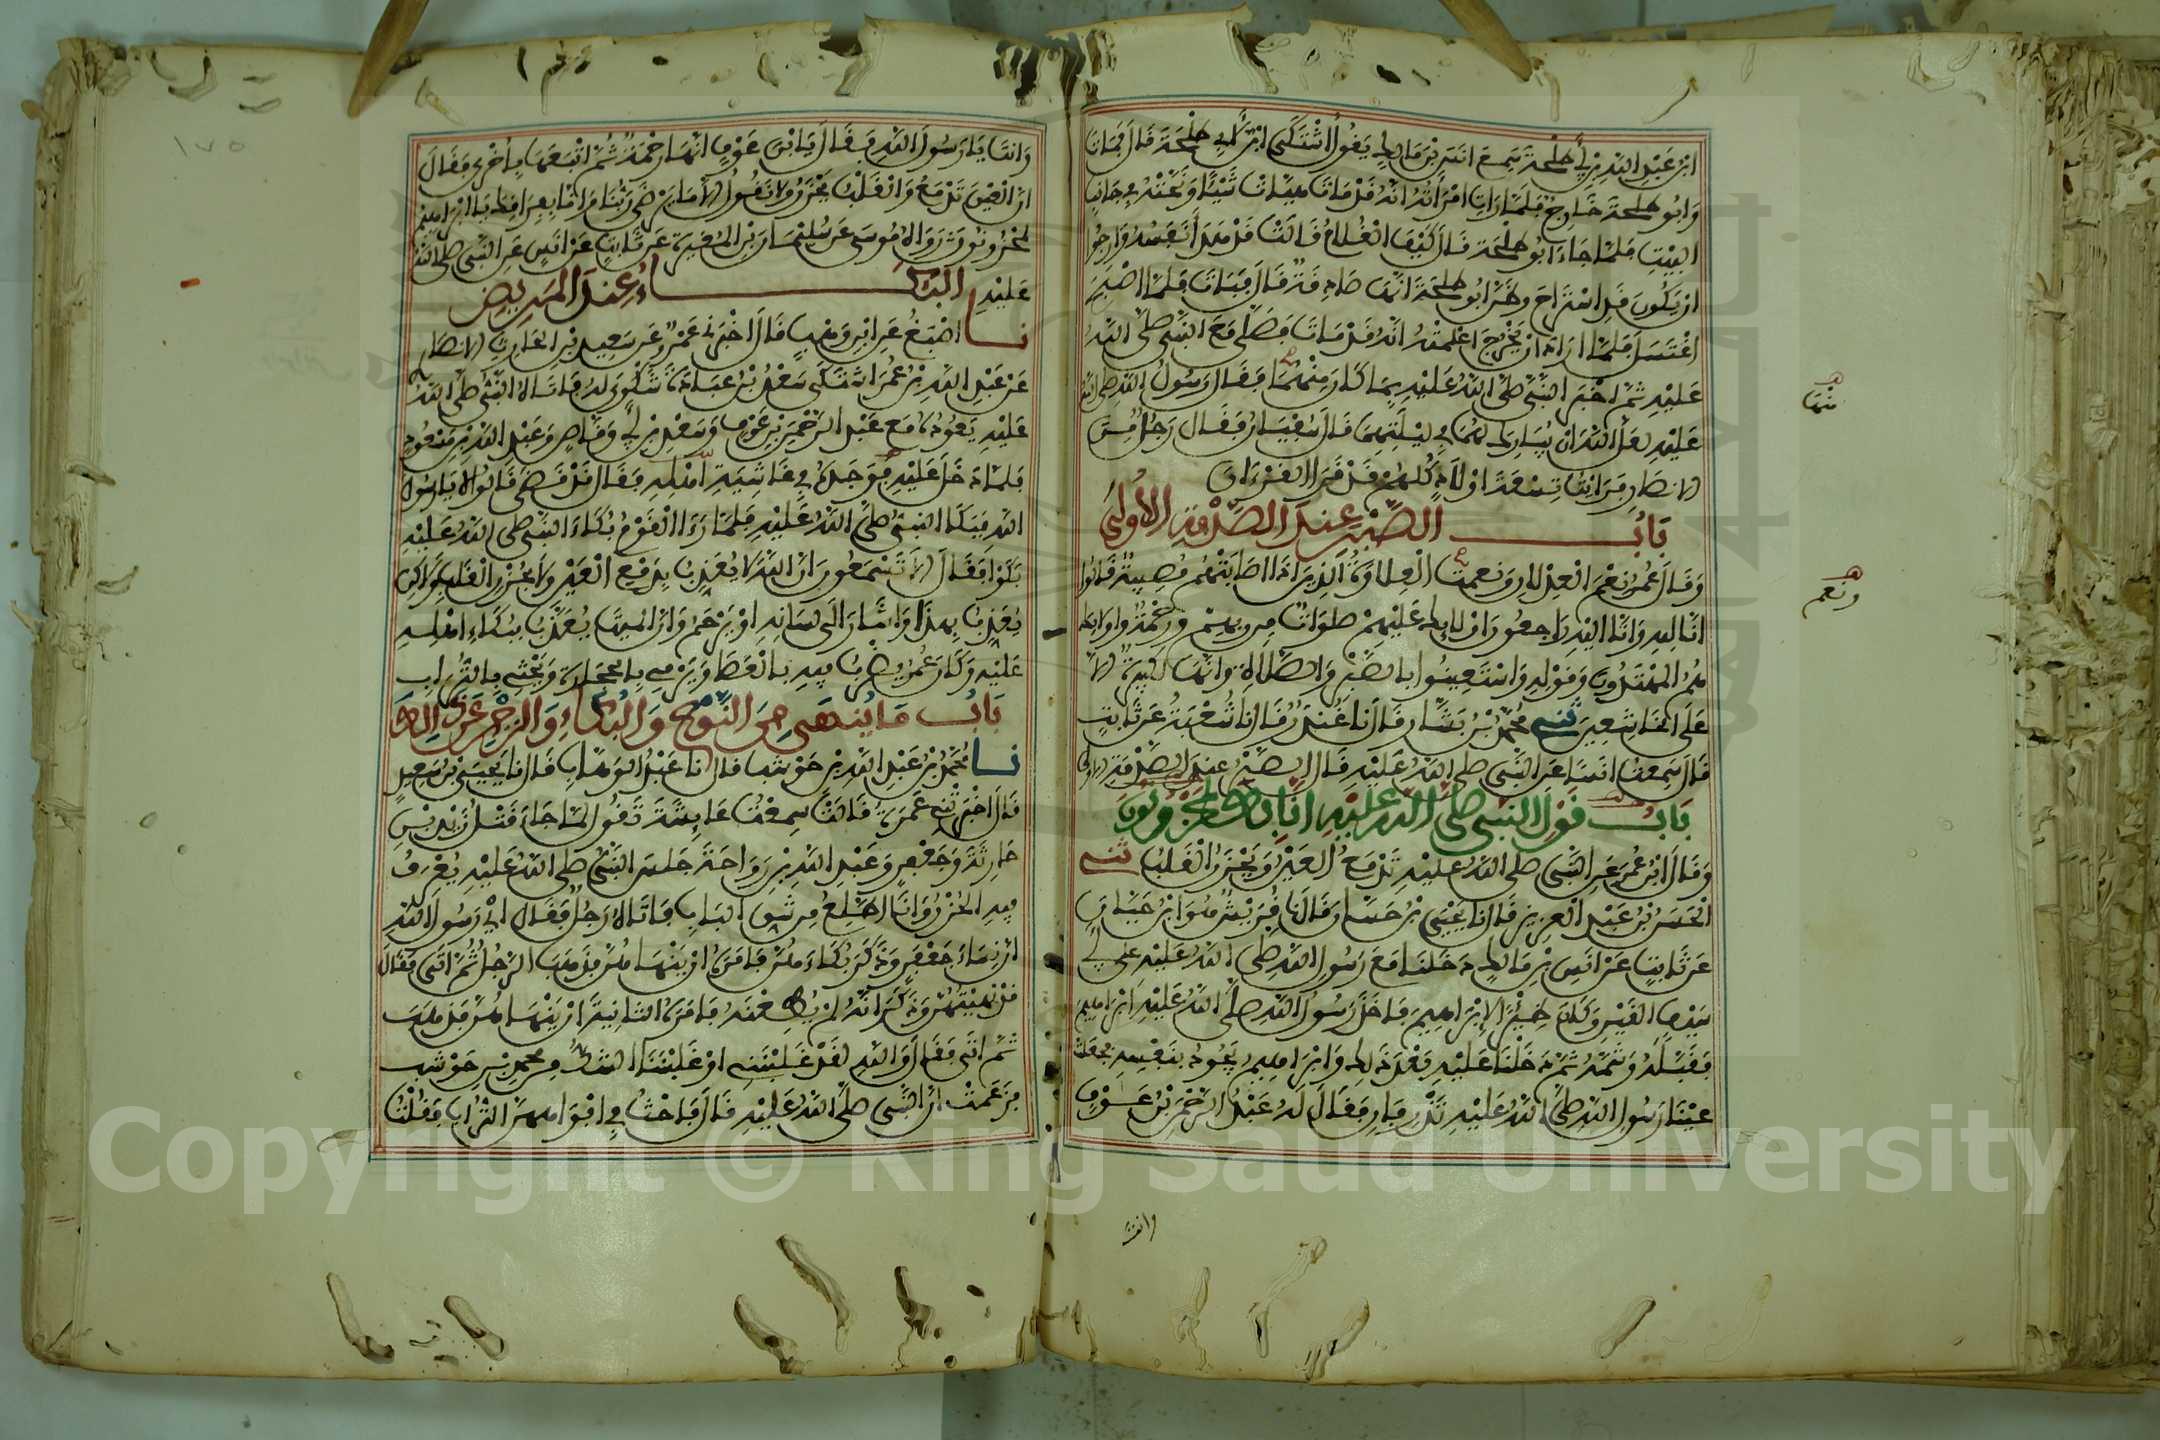 ابن عبد الله بن أبي طلحة سمع انس بن مالك يقول اشتكى ابن لأبي طلحة قال فمات
وابو طلحة خارج فلما رات امرأته انه قد مات هيات شيئا ونحته في جانب
البيت فلما جاء ابو طلحة قال كيف الغلام قالت قد هدأ نفسه وارجوا
ان يكون قد استراح وظن ابو طلحة انها صادقة قال فبات فلما اصبح
اغتسل فلما اراد ان يخرج اعلمته انه قد مات فصلى مع النبي صلى الله
عليه ثم اخبر النبي صلى الله عليه بما كان منهما فقال رسول الله صلى الله
عليه لعل الله ان يبارك لهما في ليلتهما قال سفيان فقال رجل من
الانصار فرايت تسعة اولاد كلهم قد قرا القرءان
باب الصبر عند الصدمة الأولى
وقال عمر نعم العدلان ونعمت العلاوة الذين اذا اصابتهم مصيبة قالوا
انا لله وانا اليه راجعون اولئك عليهم صلوات من ربهم ورحمة واولئك
هم المهتدون وقوله واستعينوا بالصبر والصلاة وانها لكبيرة الا
على الخاشعين ثني محمد بن بشار قال نا غندر قال نا شعبة عن ثابت
قال سمعت انسا عن النبي صلى الله عليه قال الصبر عند الصدمة الاولى
باب قول النبي صلى الله عليه انا بك لمحزونون
وقال ابن عمر عن النبي صلى الله عليه تدمع العين ويحزن القلب ثني
الحسن بن عبد العزيز قال نا يحيى بن حسان قال نا قريش هو ابن حيان
عن ثابت عن انس بن مالك دخلنا مع رسول الله صلى الله عليه على أبي
سيف القين وكان ظئرا لإبراهيم فاخذ رسول الله صلى الله عليه ابراهيم
فقبله وشمه ثم دخلنا عليه بعد ذلك وابراهيم يجود بنفسه فجعلت
عينا رسول الله صلى الله عليه تذرفان فقال له عبد الرحمن بن عوف
وانت
منها
ونعم
وانت يا رسول الله فقال يا ابن عوف انها رحمة ثم اتبعها بأخرى فقال
ان العين تدمع والقلب يحزن ولا نقول الا ما يرضي ربنا وانا بفراقك يا ابراهيم
لمحزونون رواه موسى عن سليمان بن المغيرة عن ثابت عن انس عن النبي صلى الله
عليه البكاء عند المريض
نا اصبغ عن ابن وهب قال اخبرني عمرو عن سعيد بن الحارث الانصاري
عن عبد الله بن عمر اشتكى سعد بن عبادة شكوى له فاتاه النبي صلى الله
عليه يعوده مع عبد الرحمن بن عوف وسعد بن أبي وقاص وعبد الله بن مسعود
فلما دخل عليه فوجده في غاشية اهله فقال قد قضى قالوا لا يا رسول
الله فبكا النبي صلى الله عليه فلما رءا القوم بكاء النبي صلى الله عليه
بكوا فقال الا تسمعون ان الله لا يعذب بدمع العين ولا بحزن القلب ولاكن
يعذب بهذا واشار الى لسانه او يرحم وان الميت يعذب ببكاء اهله
عليه وكان عمر يضرب فيه بالعصا ويرمي بالحجارة ويحثي بالتراب
باب ما ينهى من النوح والبكاء والزجر عن ذلك
نا محمد بن عبد الله بن حوشب قال نا عبد الوهاب قال نا يحيى بن سعيد
قال اخبرتني عمرة قالت سمعت عايشة تقول لما جاء قتل زيد بن
حارثة وجعفر وعبد الله بن رواحة جلس النبي صلى الله عليه يعرف
فيه الحزن وانا اطلع من شق الباب فاتاه رجل فقال اي رسول الله
ان نساء جعفر وذكر بكاءهن فامره ان ينهاهن فذهب الرجل ثم اتى فقال
قد نهيتهن وذكر انه لم يطعنه فامره الثانية ان ينهاهن فذهب
ثم اتى فقال والله لقد غلبنني او غلبننا الشك من محمد بن حوشب
فزعمت ان النبي صلى الله عليه قال فاحث في افواههن التراب فقلت
١٧٥
Copyright © King Saud University